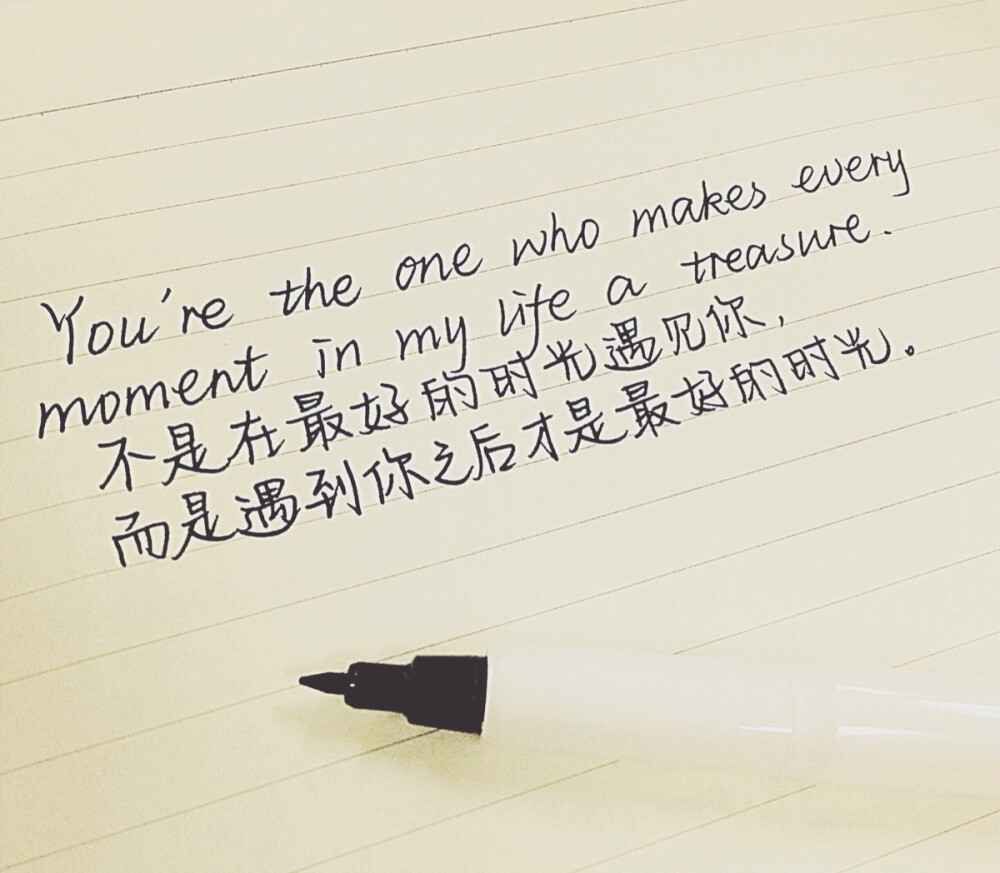 You're the one who makes every
moment in my life a treasure.
不是在最好的时光遇见你,
而是遇到你之后才是最好的时光。